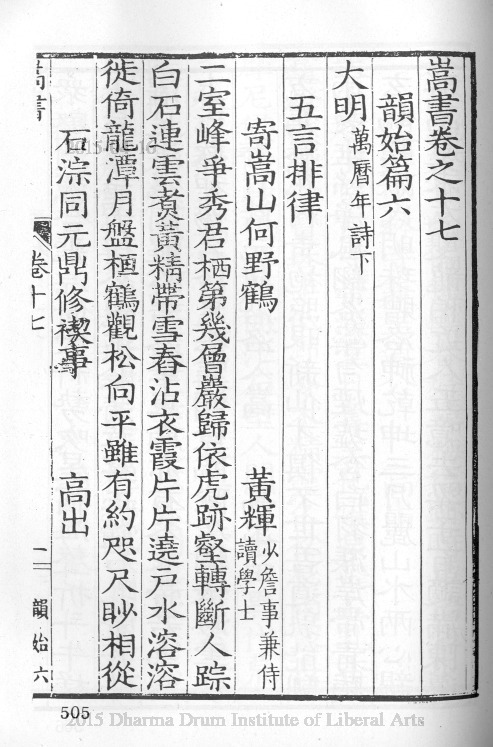 嵩書卷之十七
韻始篇六
大明 萬曆年詩下
五言排律
寄嵩山何野鶴 黃輝 少詹事兼侍讀學士
二室峰爭秀君栖第幾層巖歸依虎跡壑轉斷人踪
白石連雲煑黃精帶雪舂沾衣霞片片遶戶水溶溶
徙倚龍潭月盤桓鶴觀松向平雖有約咫尺眇相從
石淙同元鼎修禊事 高出
嵩書 卷十七 一 韻始六
505
2015 Dharma Drum Institute of Liberal Arts